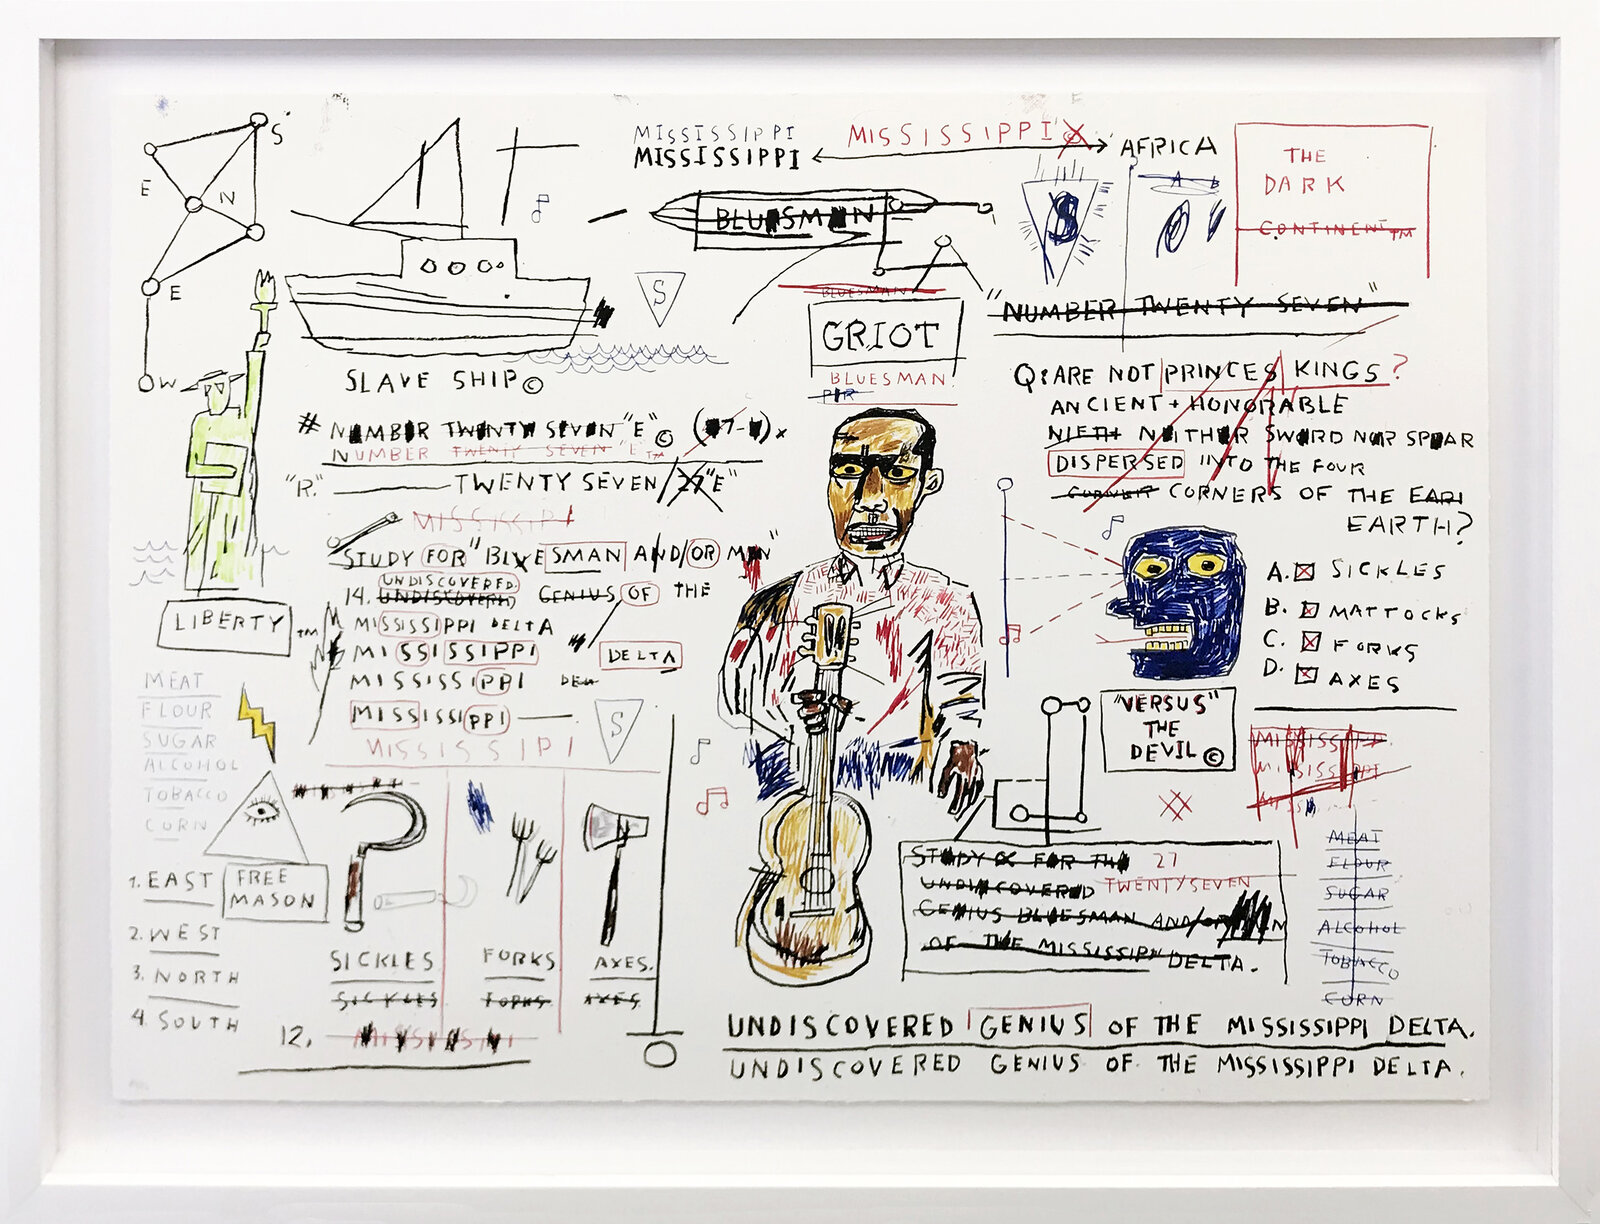 S
E
N
E
W
MISSISSIPPI
MISSISSIPPI
MISSISSIPPI
AFRICA
THE
DARK
CONTINENT TM
BLUESMAN
A B
S
S
BLUESMAN
GRIOT
BLUESMAN.
"NUMBER TWENTY SEVEN"
SLAVE SHIP ©
# NUMBER TWENTY SEVEN "E" ©
NUMBER TWENTY SEVEN "E" TM
"R." TWENTY SEVEN / 27 "E"
MISSISSIPI
STUDY FOR "BLUESMAN AND/OR MEN"
UNDISCOVERED
14. UNDISCOVERED GENIUS OF THE
MISSISSIPPI DELTA
MISSISSIPPI
DELTA
MISSISSIPPI
MISSISSIPPI
MISSISSIPI
S
LIBERTY TM
MEAT
FLOUR
SUGAR
ALCOHOL
TOBACCO
CORN
1. EAST
FREE
MASON
2. WEST
3. NORTH
4. SOUTH
SICKLES
FORKS
AXES.
SICKLES
FORKS
AXES
12.
Q: ARE NOT PRINCES KINGS?
ANCIENT + HONORABLE
NIETH NEITHER SWORD NOR SPEAR
DISPERSED INTO THE FOUR
CORNER CORNERS OF THE EARI
EARTH?
A. SICKLES
B. MATTOCKS
C. FORKS
D. AXES
"VERSUS"
THE
DEVIL ©
MISSISSIPPI
MISSISSIPPI
STUDY FOR THE 27
UNDISCOVERED TWENTYSEVEN
GENIUS BLUESMAN AND/OR MEN
OF THE MISSISSIPPI DELTA.
MEAT
FLOUR
SUGAR
ALCOHOL
TOBACCO
CORN
UNDISCOVERED GENIUS OF THE MISSISSIPPI DELTA.
UNDISCOVERED GENIUS OF THE MISSISSIPPI DELTA.